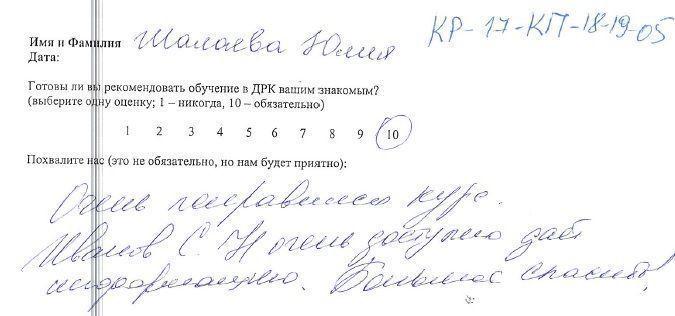 КР-17-КП-18-19-05
Имя и Фамилия Шалаева Юлия
Дата:
Готовы ли вы рекомендовать обучение в ДРК вашим знакомым?
(выберите одну оценку; 1 – никогда, 10 – обязательно)
1 2 3 4 5 6 7 8 9 10
Похвалите нас (это не обязательно, но нам будет приятно):
Очень понравился курс.
Иванов С. Н очень доступно даёт
информацию. Большое спасибо!